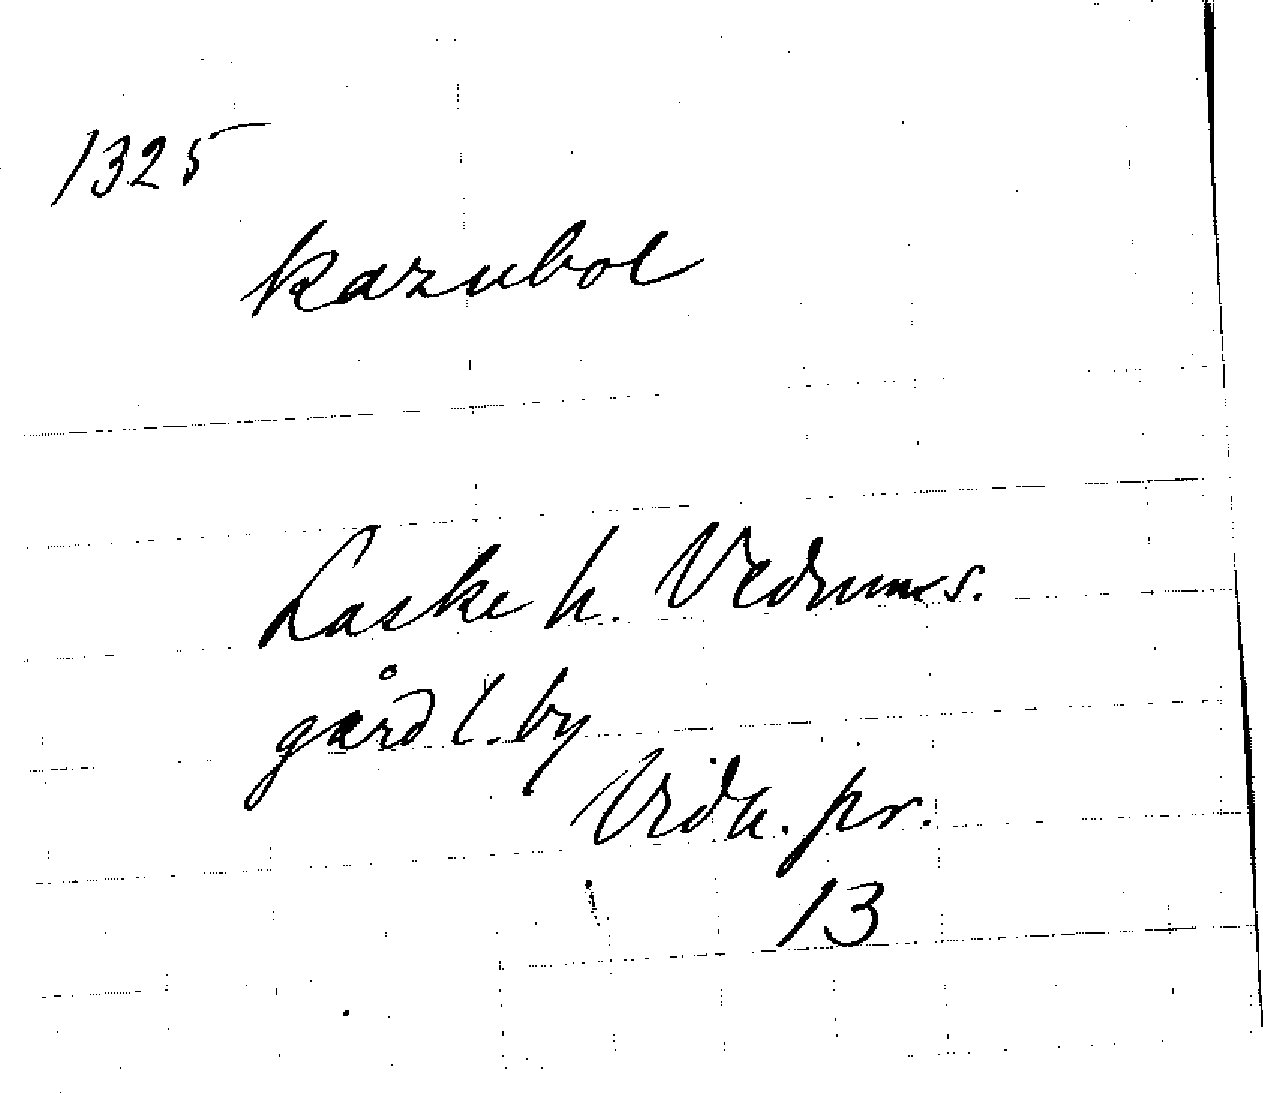 1325
kazubol
Laske h. Vedrums.
gård l. by
Vidh. pr.
13